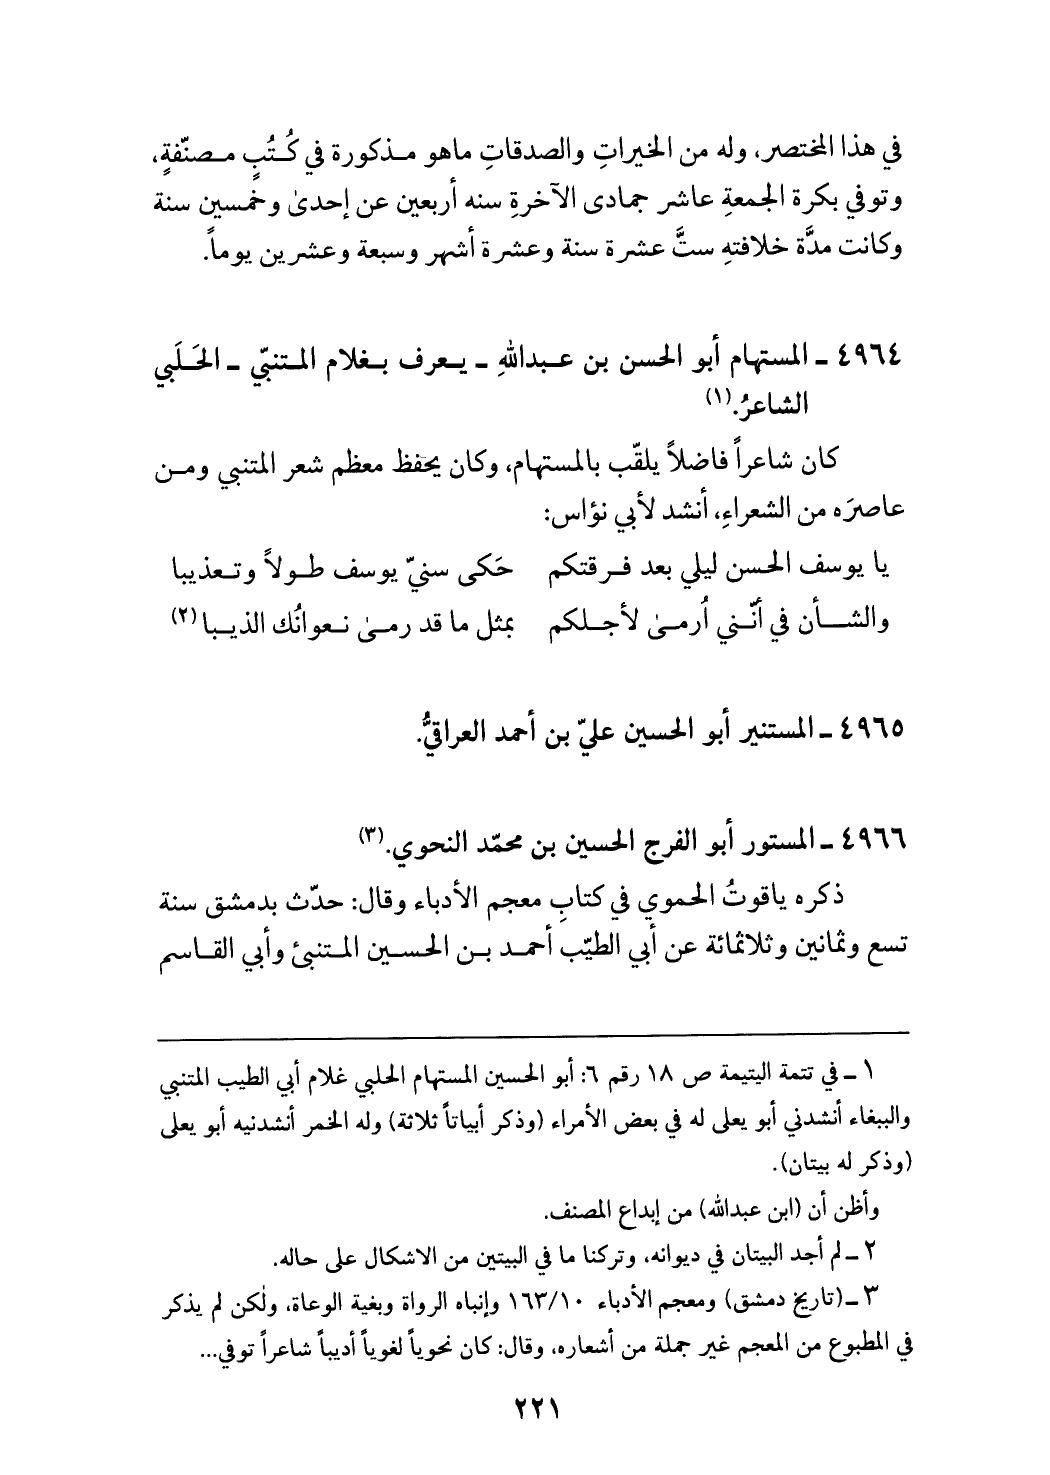 في هذا المختصر، وله من الخيراتِ والصدقاتِ ماهو مـذكورة في كُـتُبٍ مـصنّفةٍ،
وتوفي بكرة الجمعةِ عاشر جمادى الآخرةِ سنه أربعين عن إحدىٰ وخمسين سنة
وكانت مدَّة خلافتهِ ستَّ عشرة سنة وعشرة أشهر وسبعة وعشرين يوماً.
٤٩٦٤ ـ المستهام أبو الحسن بن عـبداللهِ ـ يـعرف بـغلام المـتنبّي ـ الحَـلَبي
الشاعرُ.(١)
كان شاعراً فاضلاً يلقّب بالمستهام، وكان يحفظ معظم شعر المتنبي ومـن
عاصرَه من الشعراءِ، أنشد لأبي نؤاس:
يا يوسف الحسن ليلي بعد فـرقتكم حَكى سنيّ يوسف طـولاً وتـعذيبا
والشـأن في أنّـني أُرمـىٰ لأجـلكم بمثل ما قد رمـىٰ نـعوانُك الذيـبا (٢)
٤٩٦٥ ـ المستنير أبو الحسين عليّ بن أحمد العراقيُّ.
٤٩٦٦ ـ المستور أبو الفرج الحسين بن محمّد النحوي.(٣)
ذكره ياقوتُ الحموي في كتابِ معجم الأدباء وقال: حدّث بدمشق سنة
تسع وثمانين وثلاثمائة عن أبي الطيّب أحمـد بـن الحسـين المـتنبئ وأبي القـاسم
١ ـ في تتمة اليتيمة ص ١٨ رقم ٦: أبو الحسين المستهام الحلبي غلام أبي الطيب المتنبي
والببغاء أنشدني أبو يعلى له في بعض الأمراء (وذكر أبياتاً ثلاثة) وله الخمر أنشدنيه أبو يعلى
(وذكر له بيتان).
وأظن أن (ابن عبدالله) من إبداع المصنف.
٢ ـ لم أجد البيتان في ديوانه، وتركنا ما في البيتين من الاشكال على حاله.
٣ ـ (تاريخ دمشق) ومعجم الأدباء ١٦٣/١٠ وإنباه الرواة وبغية الوعاة، ولٰكن لم يذكر
في المطبوع من المعجم غير جملة من أشعاره، وقال: كان نحوياً لغوياً أديباً شاعراً توفي...
٢٢١